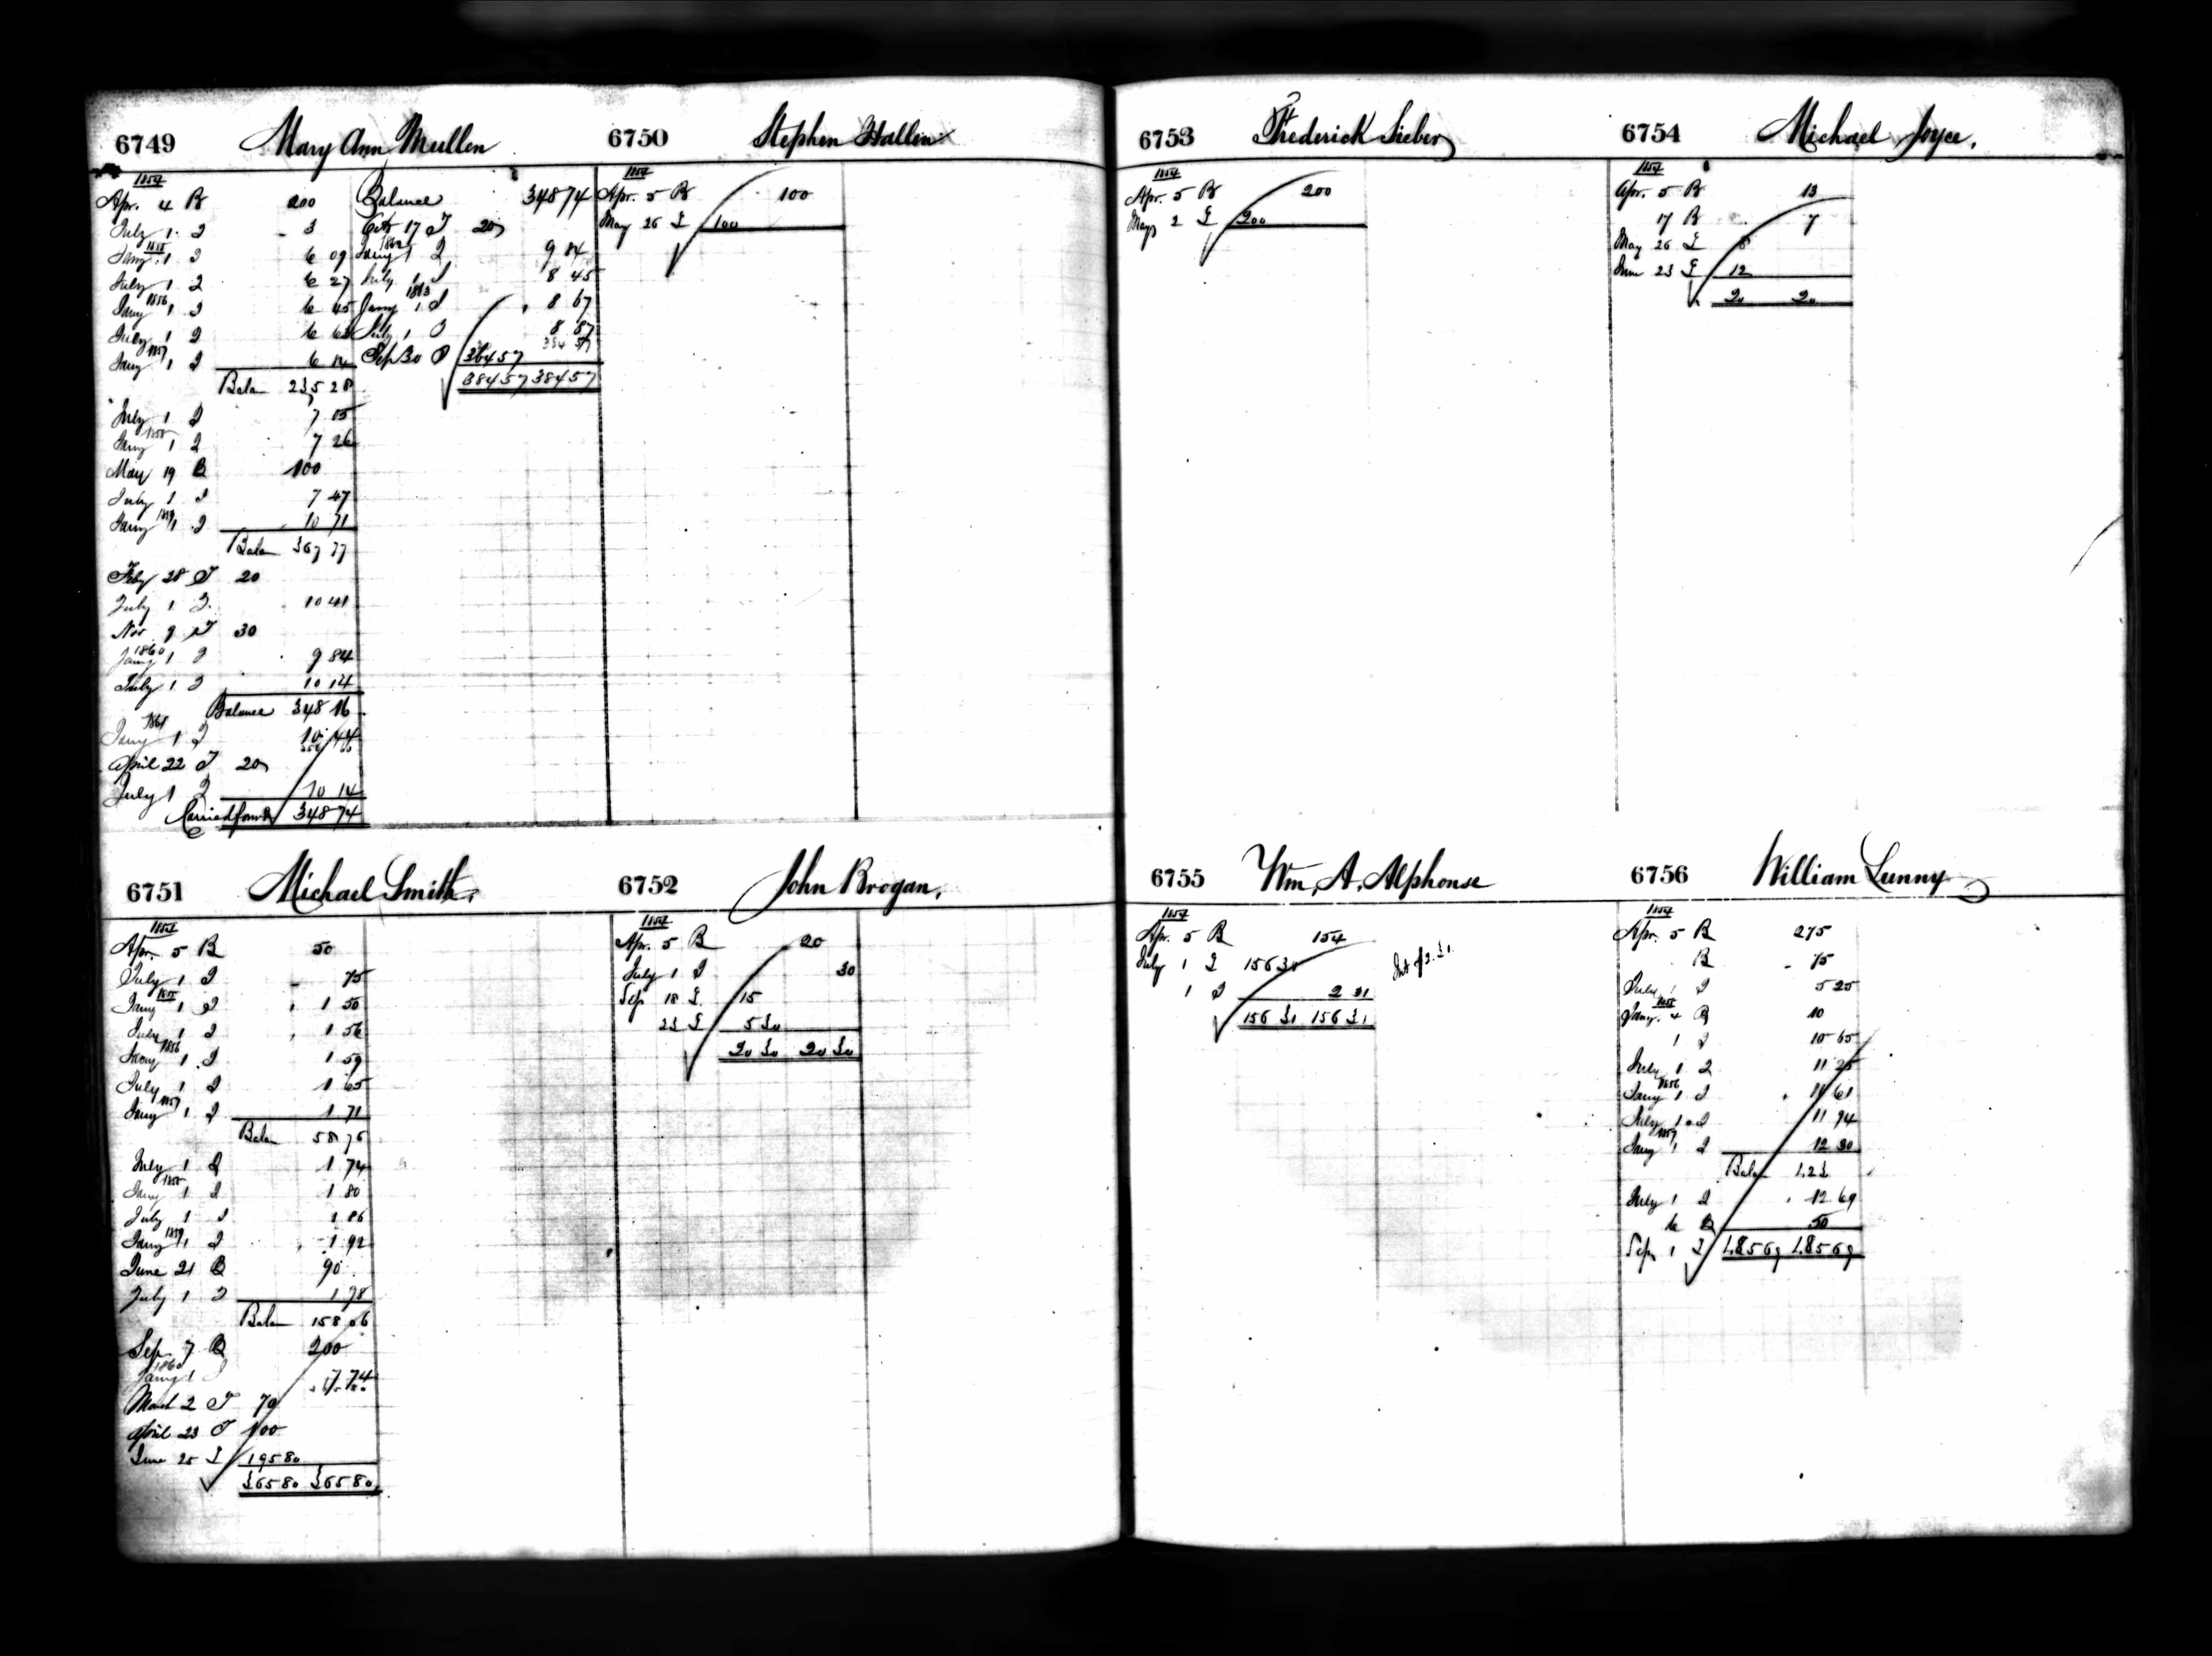 6749 Mary Ann Mullen
1854
Apr. 4 B 200
July 1 I 3
Jany 1855 1 I 6 09
July 1 I 6 27
Jany 1856 1 I 6 45
July 1 I 6 63
Jany 1857 1 I 6 84
Balan 235 28
July 1 I 7 05
Jany 1858 1 I 7 26
May 19 B 100
July 1 I 7 47
Jany 1859 1 I 10 71
Balan 367 77
Feby 28 T 20
July 1 I 10 41
Nov 9 T 30
Jany 1860 1 I 9 84
July 1 I 10 14
Balance 348 16
Jany 1861 1 I 10 44
April 22 T 20
July 1 I 10 14
Carried forwd 348 74
Balance 348 74
Oct 17 T 20
Jany 1862 1 I 9 84
July 1 I 8 45
Jany 1863 1 I 8 67
July 1 I 8 87
384 57
Sep 30 364 57
384 57 384 57
6750 Stephen Hallen
1854
Apr. 5 B 100
May 26 £ 100
6751 Michael Smith.
1854
Apr. 5 B 50
July 1 I 75
Jany 1855 1 I 1 50
July 1 I 1 56
Jany 1856 1 I 1 59
July 1 I 1 65
Jany 1857 1 I 1 71
Balan 58 76
July 1 I 1 74
Jany 1858 1 I 1 80
July 1 I 1 86
Jany 1859 1 I 1 92
June 21 B 90
July 1 I 1 98
Balan 158 06
Sep. 7 B 200
Jany 1860 1 I 7 74
365 80
March 2 T 70
April 23 T 100
June 25 £ 195 80
365 80 365 80
6752 John Brogan.
1854
Apr. 5 B 20
July 1 I 30
Sep 18 £ 15
23 £ 5 30
20 30 20 30
6753 Frederick Sieber
1854
Apr. 5 B 200
May 2 £ 200
6754 Michael Joyce.
1854
Apr. 5 B 13
17 B 7
May 26 £ 8
June 23 £ 12
20 20
6755 Wm. A. Alphonse
1854
Apr. 5 B 154
July 1 £ 156 31 Int of 2.31
1 I 2 31
156 31 156 31
6756 William Lunny
1854
Apr. 5 B 275
B 75
July 1 I 5 25
Jany. 1855 4 B 10
1 I 10 65
July 1 I 11 25
Jany 1856 1 I 11 61
July 1 I 11 94
Jany 1857 1 I 12 30
Balan 423
July 1 I 12 69
6 B 50
Sep 1 £ 485 69 485 69